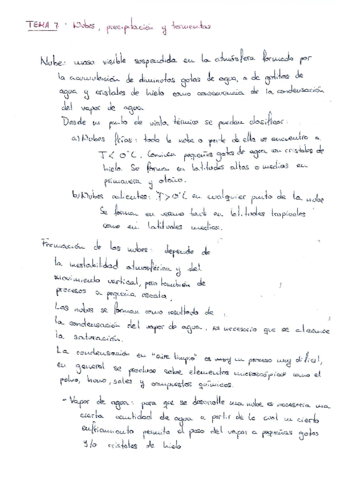 TEMA 7: Nubes, precipitación y tormentas
Nube: masa visible suspendida en la atmósfera formada por
la acumulación de diminutas gotas de agua, o de gotitas de
agua y cristales de hielo como consecuencia de la condensación
del vapor de agua.
Desde un punto de vista térmico se pueden clasificar:
a) Nubes frías: toda la nube o parte de ella se encuentra a
T < 0°C. Conviven pequeñas gotas de agua con cristales de
hielo. Se forman en latitudes altas o medias en
primavera y otoño.
b) Nubes calientes: T > 0°C en cualquier punto de la nube
Se forman en verano tanto en latitudes tropicales
como en latitudes medias.
Formación de las nubes: depende de
la inestabilidad atmosférica y del
movimiento vertical, pero también de
procesos a pequeña escala.
Las nubes se forman como resultado de
la condensación del vapor de agua. Es necesario que se alcance
la saturación.
La condensación en "aire limpio" es un proceso muy difícil,
en general se produce sobre elementos microscópicos como el
polvo, humo, sales y compuestos químicos.
- Vapor de agua: para que se desarrolle una nube es necesaria una
cierta cantidad de agua a partir de la cual un cierto
enfriamiento permita el paso del vapor a pequeñas gotas
y/o cristales de hielo